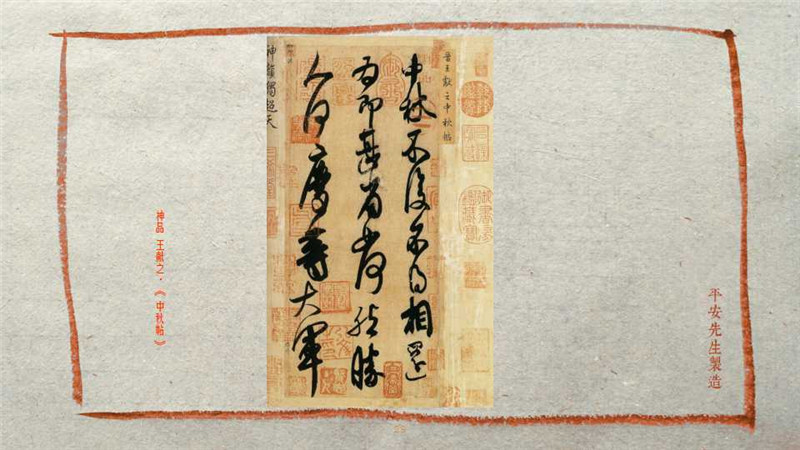 平安先生製造
晉王獻之中秋帖
中秋不復不得相還
為即甚省如何然勝
人何慶等大軍
神韻獨超天
神品 王献之·《中秋帖》